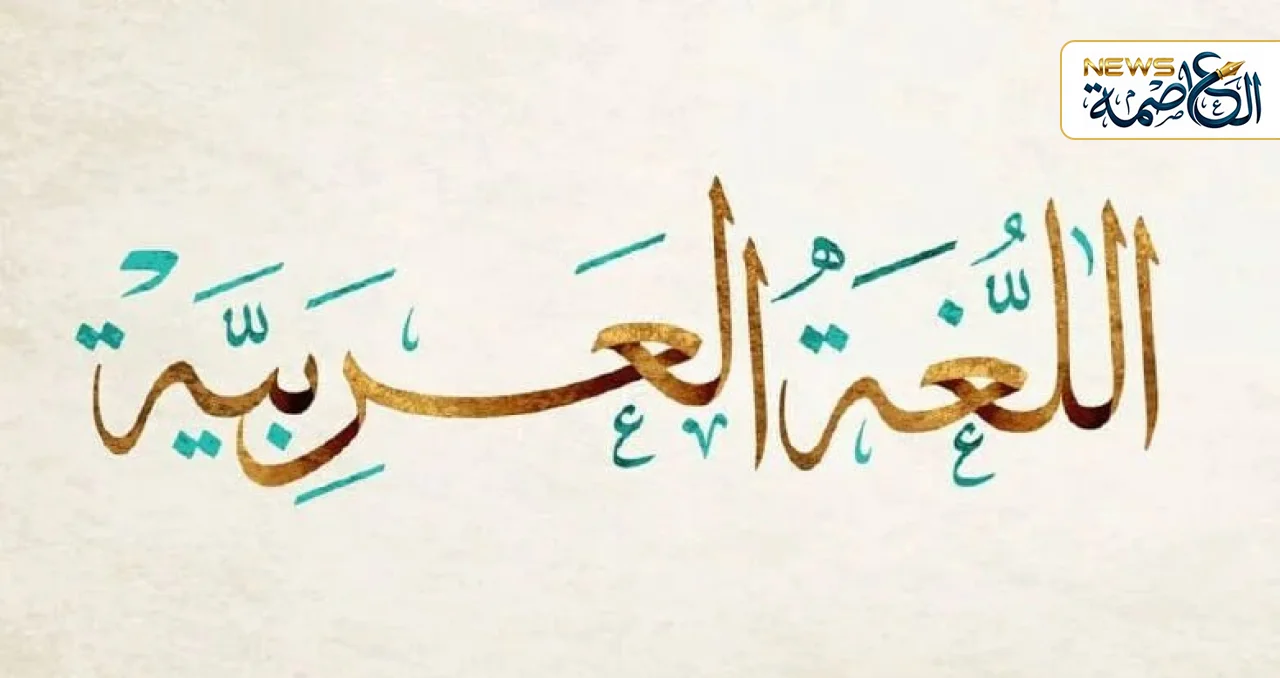 NEWS
العاصمة
اللُّغَةُ العَرَبِيَّة